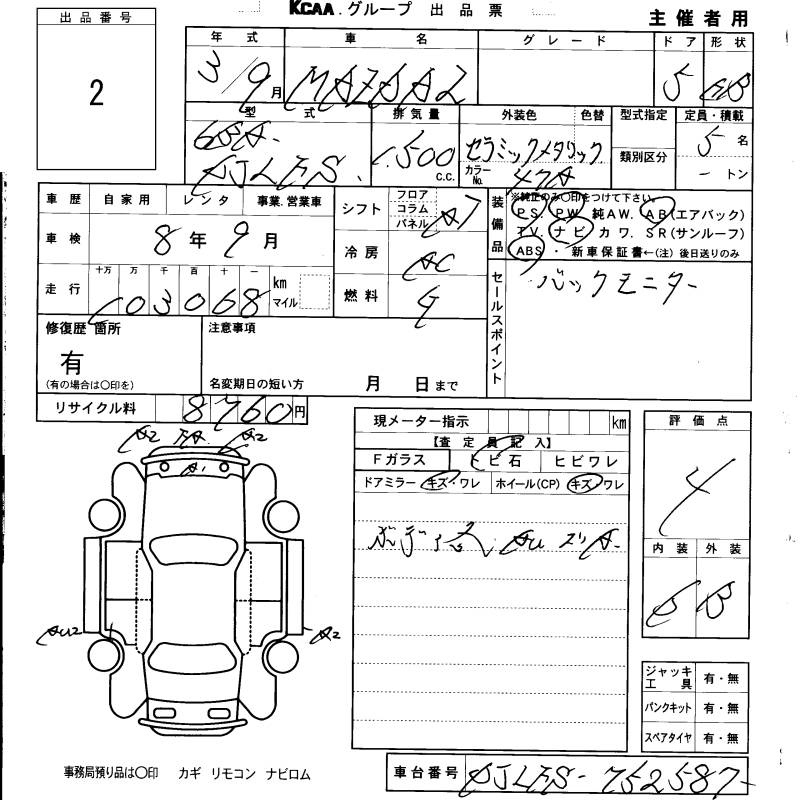 KCAA.グループ 出品票
主催者用
出品番号
2
年式 車名 グレード ドア 形状
3/9月 MAZDA2 5 HB
型式 排気量 外装色 色替 型式指定 定員・積載
6BA- 1.500 セラミックメタリック 5名
類別区分
DJLFS. c.c. カラーNo. 47A - トン
車歴 自家用 レンタ 事業.営業車
シフト フロア コラム パネル A7
装備品
※純正のみ〇印をつけて下さい。
PS. PW. 純AW. AB(エアバック)
TV. ナビ カワ. SR(サンルーフ)
ABS ・ 新車保証書←(注) 後日送りのみ
車検 8年9月
冷房 AC
走行 十万 万 千 百 十 一 km マイル
103068
燃料 G
セールスポイント
バックモニター
修復歴 箇所
有
(有の場合は〇印を)
注意事項
名変期日の短い方 月 日まで
リサイクル料 8760円
現メーター指示 km
【査定員記入】
Fガラス トビ石 ヒビワレ
ドアミラー キズ・ワレ ホイール(CP) キズ・ワレ
A2 A2
A1
評価点
4
内装 外装
B
AU2 A2
ジャッキ工具 有・無
パンクキット 有・無
スペアタイヤ 有・無
事務局預り品は〇印 カギ リモコン ナビロム
車台番号 DJLFS-752587-